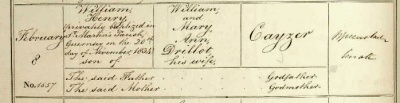 William
Henry
privately baptized in
St Martin's Parish
Guernsey on the 20th
day of November 1824
son of
The said Father
The said Mother
William
and
Mary
Ann
Drillot
his wife
Cayzer
Godfather
Godmother
February
8
No. 1057